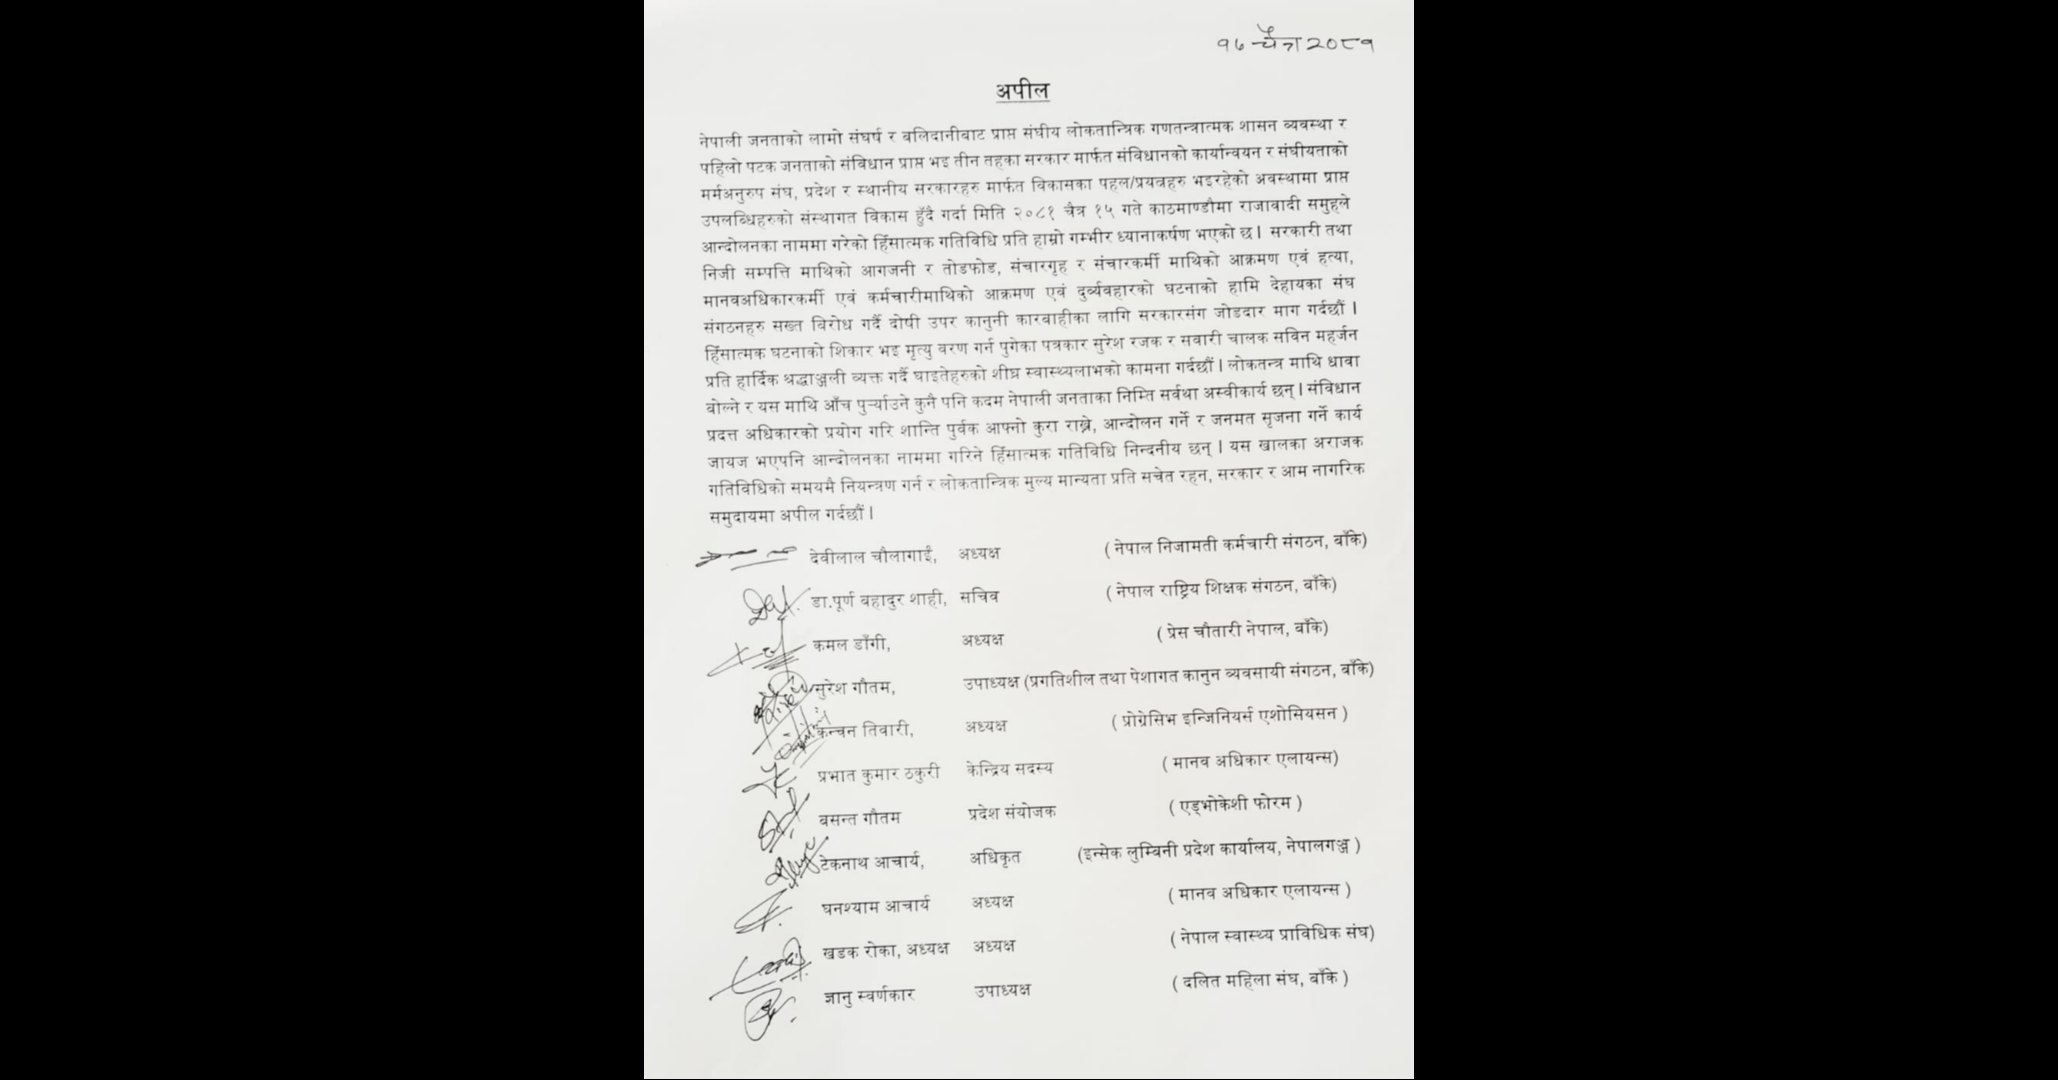 १७ चैत्र २०८१
अपील
नेपाली जनताको लामो संघर्ष र बलिदानीबाट प्राप्त संघीय लोकतान्त्रिक गणतन्त्रात्मक शासन व्यवस्था र
पहिलो पटक जनताको संविधान प्राप्त भइ तीन तहका सरकार मार्फत संविधानको कार्यान्वयन र संघीयताको
मर्मअनुरुप संघ, प्रदेश र स्थानीय सरकारहरु मार्फत विकासका पहल/प्रयत्नहरु भइरहेको अवस्थामा प्राप्त
उपलब्धिहरुको संस्थागत विकास हुँदै गर्दा मिति २०८१ चैत्र १५ गते काठमाण्डौमा राजावादी समुहले
आन्दोलनका नाममा गरेको हिंसात्मक गतिविधि प्रति हाम्रो गम्भीर ध्यानाकर्षण भएको छ । सरकारी तथा
निजी सम्पत्ति माथिको आगजनी र तोडफोड, संचारगृह र संचारकर्मी माथिको आक्रमण एवं हत्या,
मानवअधिकारकर्मी एवं कर्मचारीमाथिको आक्रमण एवं दुर्व्यवहारको घटनाको हामि देहायका संघ
संगठनहरु सख्त विरोध गर्दै दोषी उपर कानुनी कारबाहीका लागि सरकारसंग जोडदार माग गर्दछौं ।
हिंसात्मक घटनाको शिकार भइ मृत्यु वरण गर्न पुगेका पत्रकार सुरेश रजक र सवारी चालक सविन महर्जन
प्रति हार्दिक श्रद्धाञ्जली व्यक्त गर्दै घाइतेहरुको शीघ्र स्वास्थ्यलाभको कामना गर्दछौं । लोकतन्त्र माथि धावा
बोल्ने र यस माथि आँच पुर्‍याउने कुनै पनि कदम नेपाली जनताका निम्ति सर्वथा अस्वीकार्य छन् । संविधान
प्रदत्त अधिकारको प्रयोग गरि शान्ति पुर्वक आफ्नो कुरा राख्ने, आन्दोलन गर्ने र जनमत सृजना गर्ने कार्य
जायज भएपनि आन्दोलनका नाममा गरिने हिंसात्मक गतिविधि निन्दनीय छन् । यस खालका अराजक
गतिविधिको समयमै नियन्त्रण गर्न र लोकतान्त्रिक मुल्य मान्यता प्रति सचेत रहन, सरकार र आम नागरिक
समुदायमा अपील गर्दछौं ।
देवीलाल चौलागाईं, अध्यक्ष ( नेपाल निजामती कर्मचारी संगठन, बाँके)
डा.पूर्ण बहादुर शाही, सचिव ( नेपाल राष्ट्रिय शिक्षक संगठन, बाँके)
कमल डाँगी, अध्यक्ष ( प्रेस चौतारी नेपाल, बाँके)
सुरेश गौतम, उपाध्यक्ष (प्रगतिशील तथा पेशागत कानुन व्यवसायी संगठन, बाँके)
कन्चन तिवारी, अध्यक्ष ( प्रोग्रेसिभ इन्जिनियर्स एशोसियसन )
प्रभात कुमार ठकुरी केन्द्रिय सदस्य ( मानव अधिकार एलायन्स)
बसन्त गौतम प्रदेश संयोजक ( एड्भोकेशी फोरम )
टेकनाथ आचार्य, अधिकृत (इन्सेक लुम्बिनी प्रदेश कार्यालय, नेपालगञ्ज )
घनश्याम आचार्य अध्यक्ष ( मानव अधिकार एलायन्स )
खडक रोका, अध्यक्ष अध्यक्ष ( नेपाल स्वास्थ्य प्राविधिक संघ)
ज्ञानु स्वर्णकार उपाध्यक्ष ( दलित महिला संघ, बाँके )